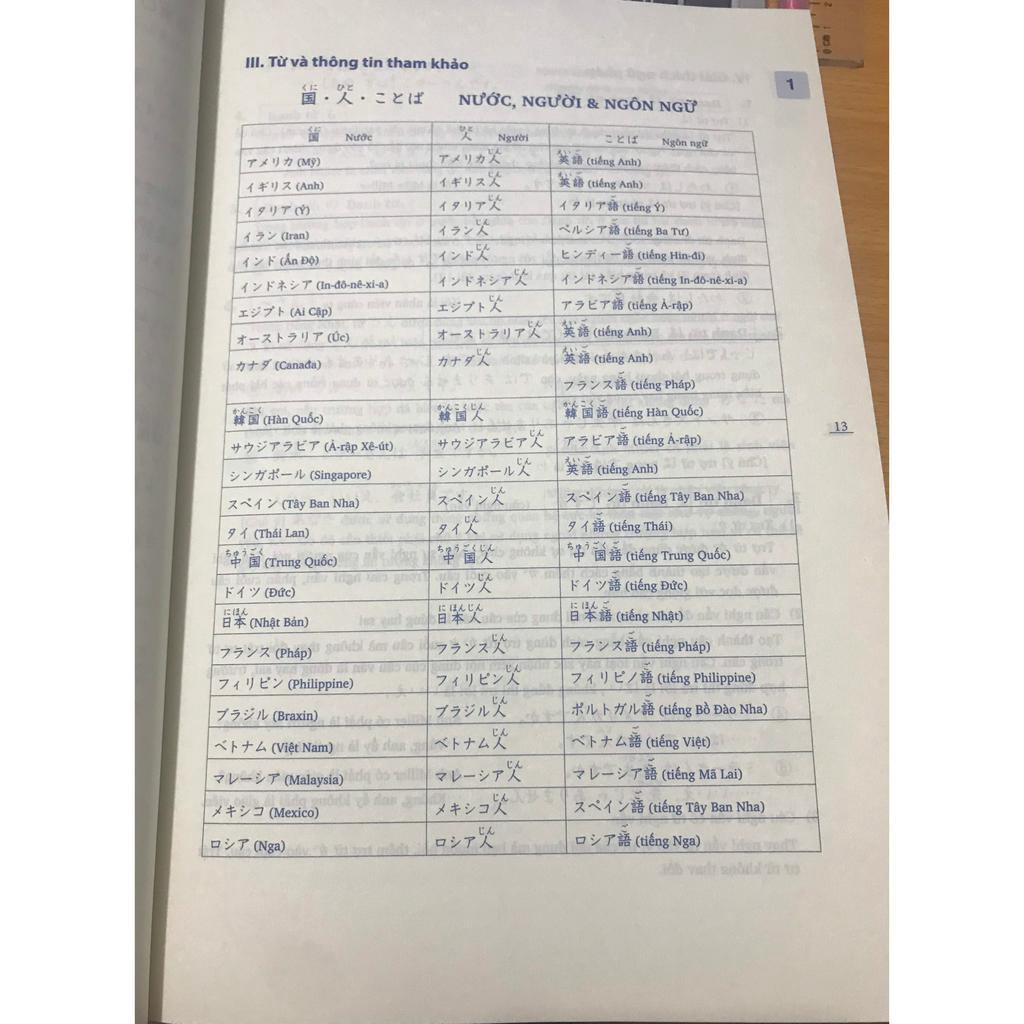 III. Từ và thông tin tham khảo
1
国・人・ことば NƯỚC, NGƯỜI & NGÔN NGỮ
国 Nước 人 Người ことば Ngôn ngữ
アメリカ (Mỹ) アメリカ人 英語 (tiếng Anh)
イギリス (Anh) イギリス人 英語 (tiếng Anh)
イタリア (Ý) イタリア人 イタリア語 (tiếng Ý)
イラン (Iran) イラン人 ペルシア語 (tiếng Ba Tư)
インド (Ấn Độ) インド人 ヒンディー語 (tiếng Hin-đi)
インドネシア (In-đô-nê-xi-a) インドネシア人 インドネシア語 (tiếng In-đô-nê-xi-a)
エジプト (Ai Cập) エジプト人 アラビア語 (tiếng Ả-rập)
オーストラリア (Úc) オーストラリア人 英語 (tiếng Anh)
カナダ (Canada) カナダ人 英語 (tiếng Anh)
フランス語 (tiếng Pháp)
韓国 (Hàn Quốc) 韓国人 韓国語 (tiếng Hàn Quốc)
13
サウジアラビア (Ả-rập Xê-út) サウジアラビア人 アラビア語 (tiếng Ả-rập)
シンガポール (Singapore) シンガポール人 英語 (tiếng Anh)
スペイン (Tây Ban Nha) スペイン人 スペイン語 (tiếng Tây Ban Nha)
タイ (Thái Lan) タイ人 タイ語 (tiếng Thái)
中国 (Trung Quốc) 中国人 中国語 (tiếng Trung Quốc)
ドイツ (Đức) ドイツ人 ドイツ語 (tiếng Đức)
日本 (Nhật Bản) 日本人 日本語 (tiếng Nhật)
フランス (Pháp) フランス人 フランス語 (tiếng Pháp)
フィリピン (Philippine) フィリピン人 フィリピノ語 (tiếng Philippine)
ブラジル (Braxin) ブラジル人 ポルトガル語 (tiếng Bồ Đào Nha)
ベトナム (Việt Nam) ベトナム人 ベトナム語 (tiếng Việt)
マレーシア (Malaysia) マレーシア人 マレーシア語 (tiếng Mã Lai)
メキシコ (Mexico) メキシコ人 スペイン語 (tiếng Tây Ban Nha)
ロシア (Nga) ロシア人 ロシア語 (tiếng Nga)